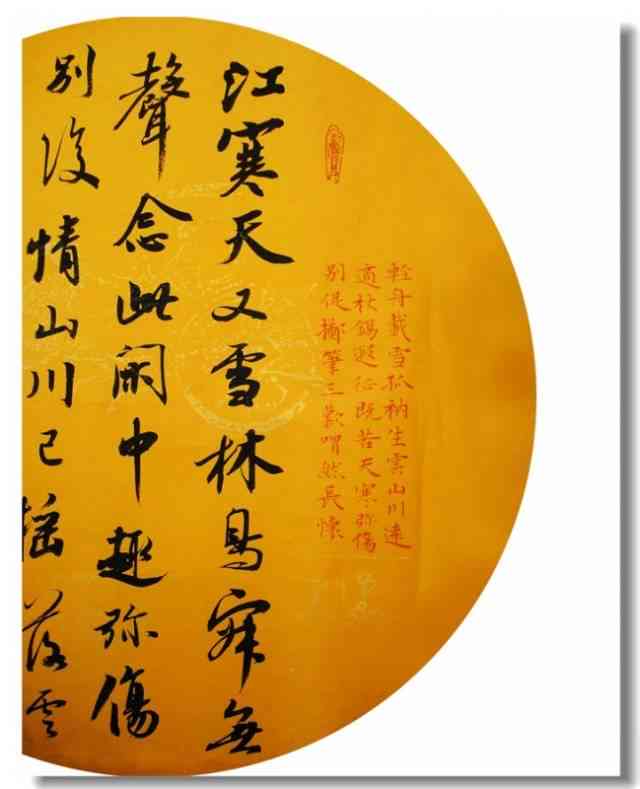 輕舟載雪孤衲生雲山川遠
適秋錫遐征既苦天寒弥傷
別促擲筆三歎喟然長懷
江寒天又雪林鳥寂無
聲念此閑中趣弥傷
別後情山川已搖落雲